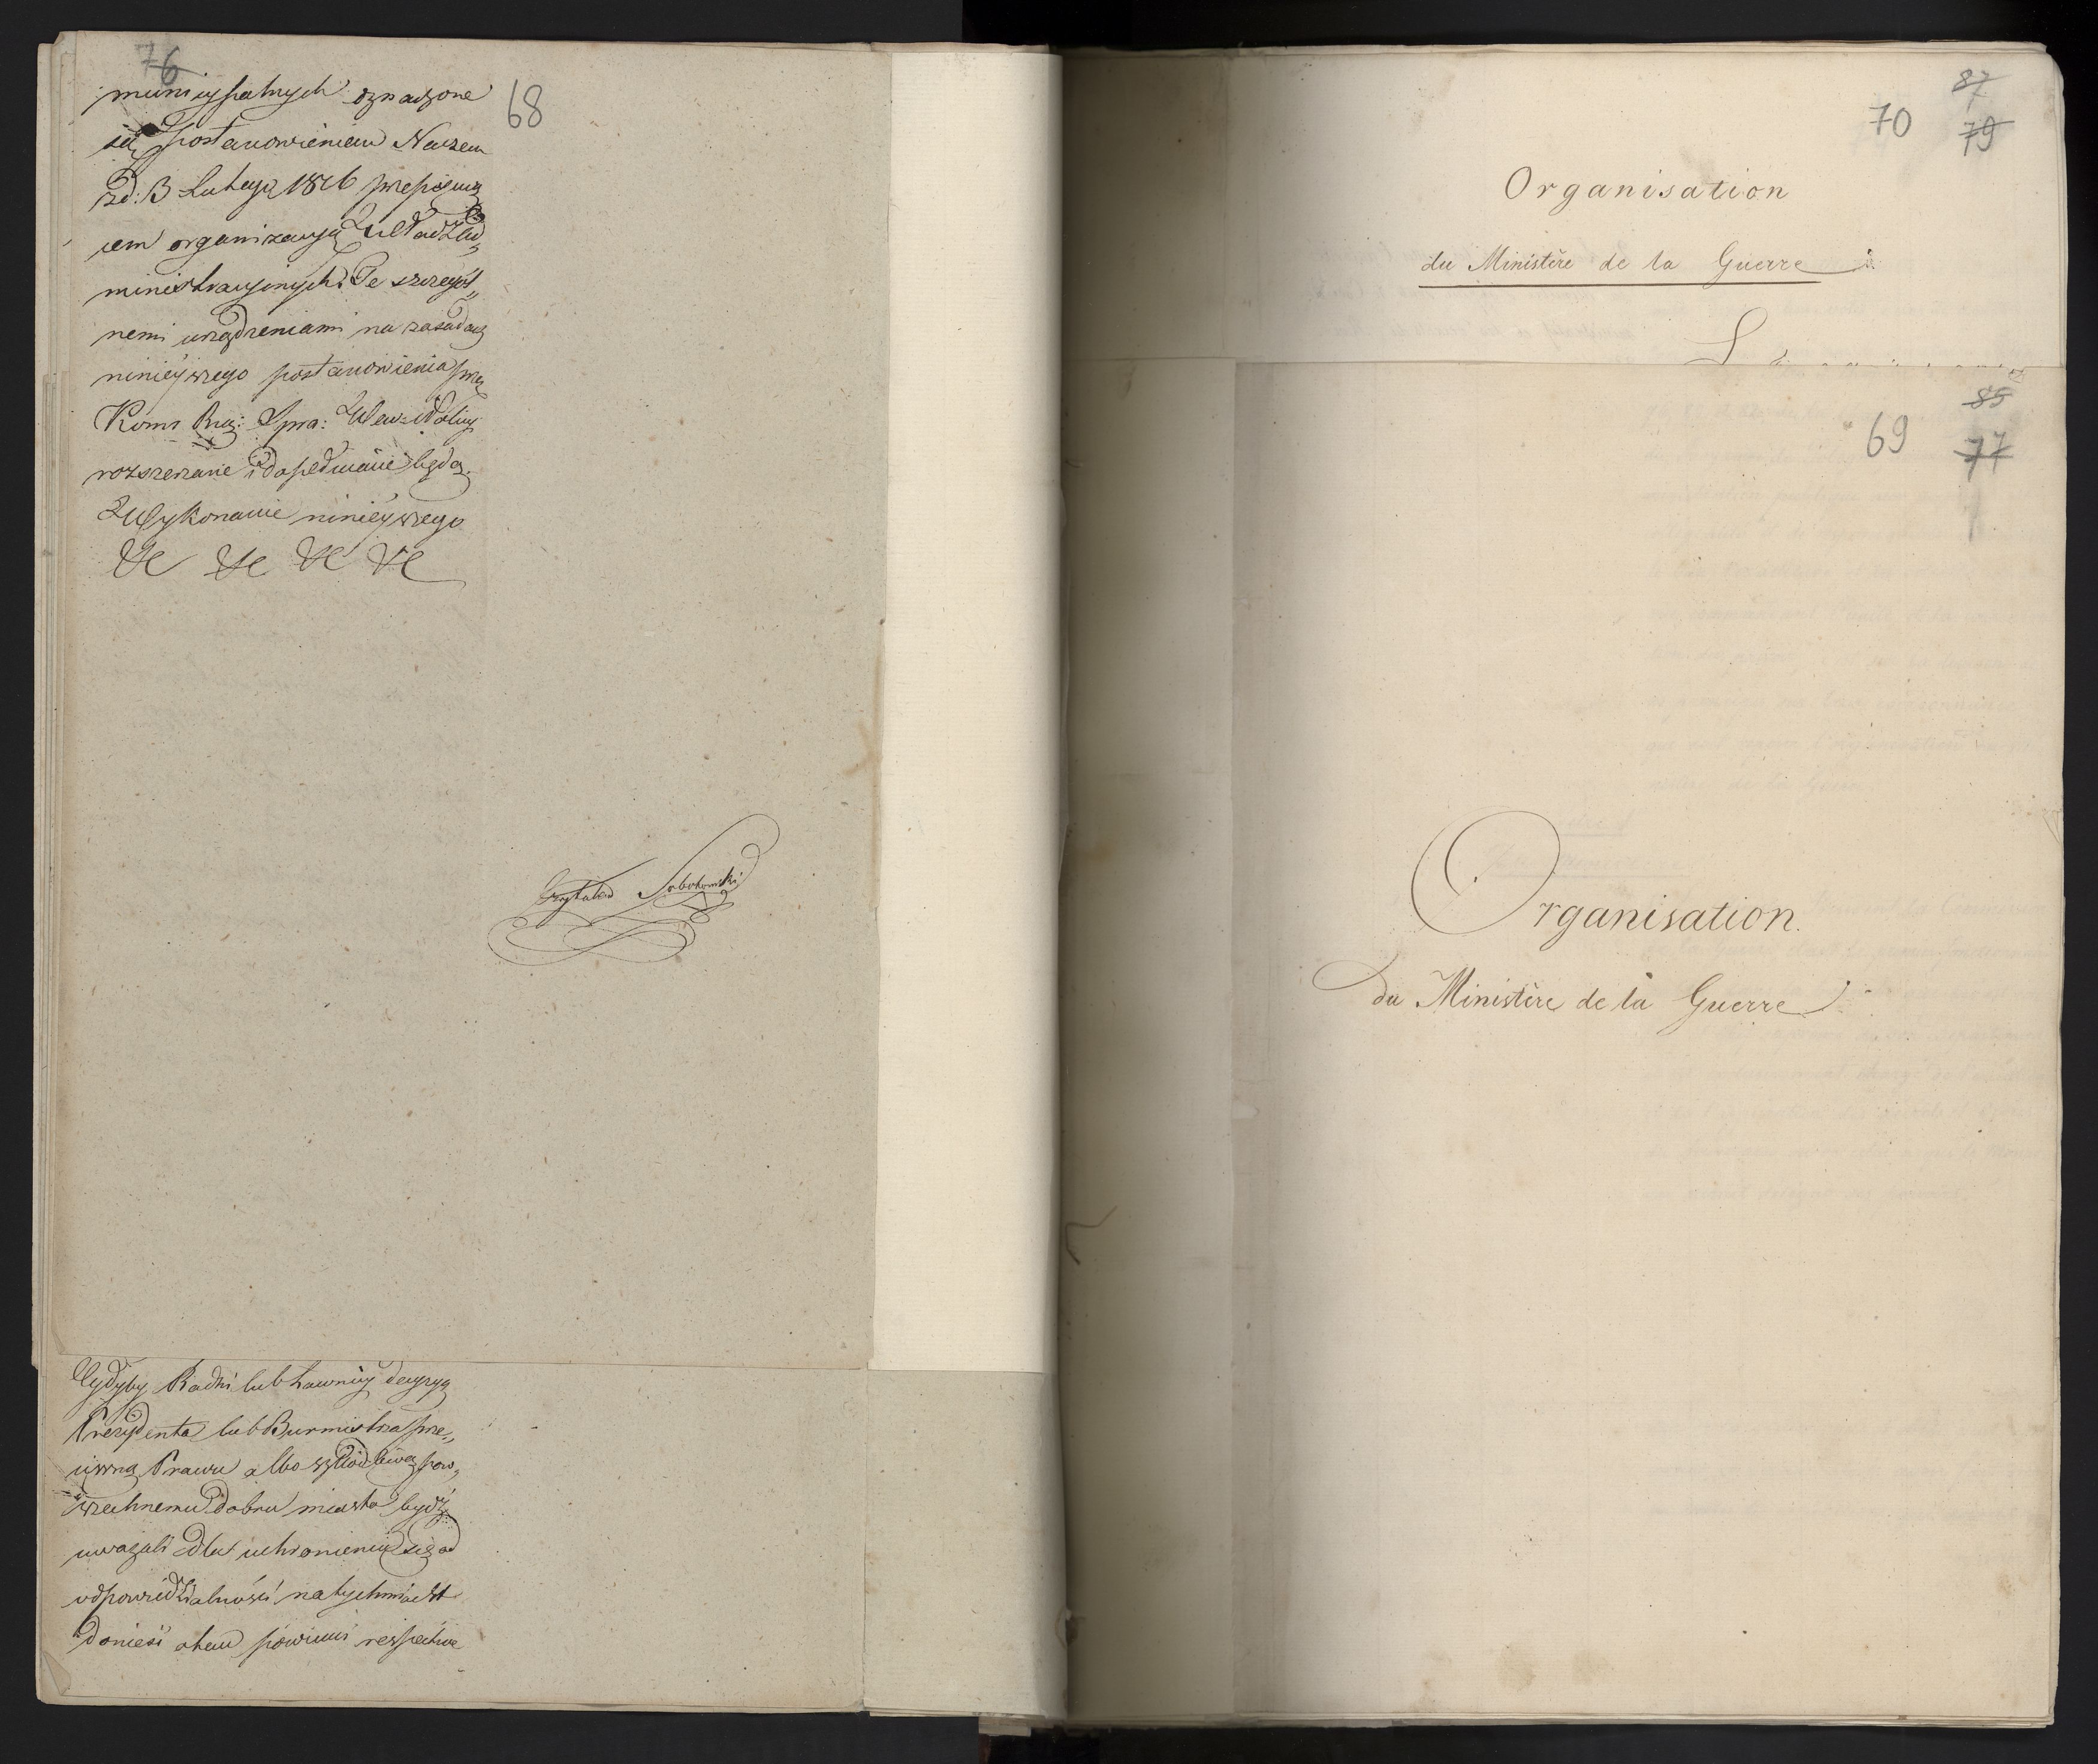 76
68
municypalnych oznaczone
są postanowieniem Naszem
zd: 3 Lutego 1816 przepisują
cem organizacyą Władz Ad„
ministracyinych. Te szczegół„
nemi urządzeniami na zasadach
ninieyszego postanowienia przez
Kom: Rz: Spra: Wew: i Policyi
rozszerzane i dopełniane będą.
Wykonanie ninieyszego
&c &c &c &c
Czytałem Sobolewski
Gdyby Radni lub Ławnicy decyzyą
Prezydenta lub Burmistrza prze„
ciwną Prawu albo szkodliwą pow„
szechnemu dobru miasta bydź
uważali dla uchronienia się od
odpowiedzialności natychmiast
donieść o tem powinni respective
87
70
79
Organisation
du Ministère de la Guerre
85
69
77
Organisation.
du Ministère de la Guerre